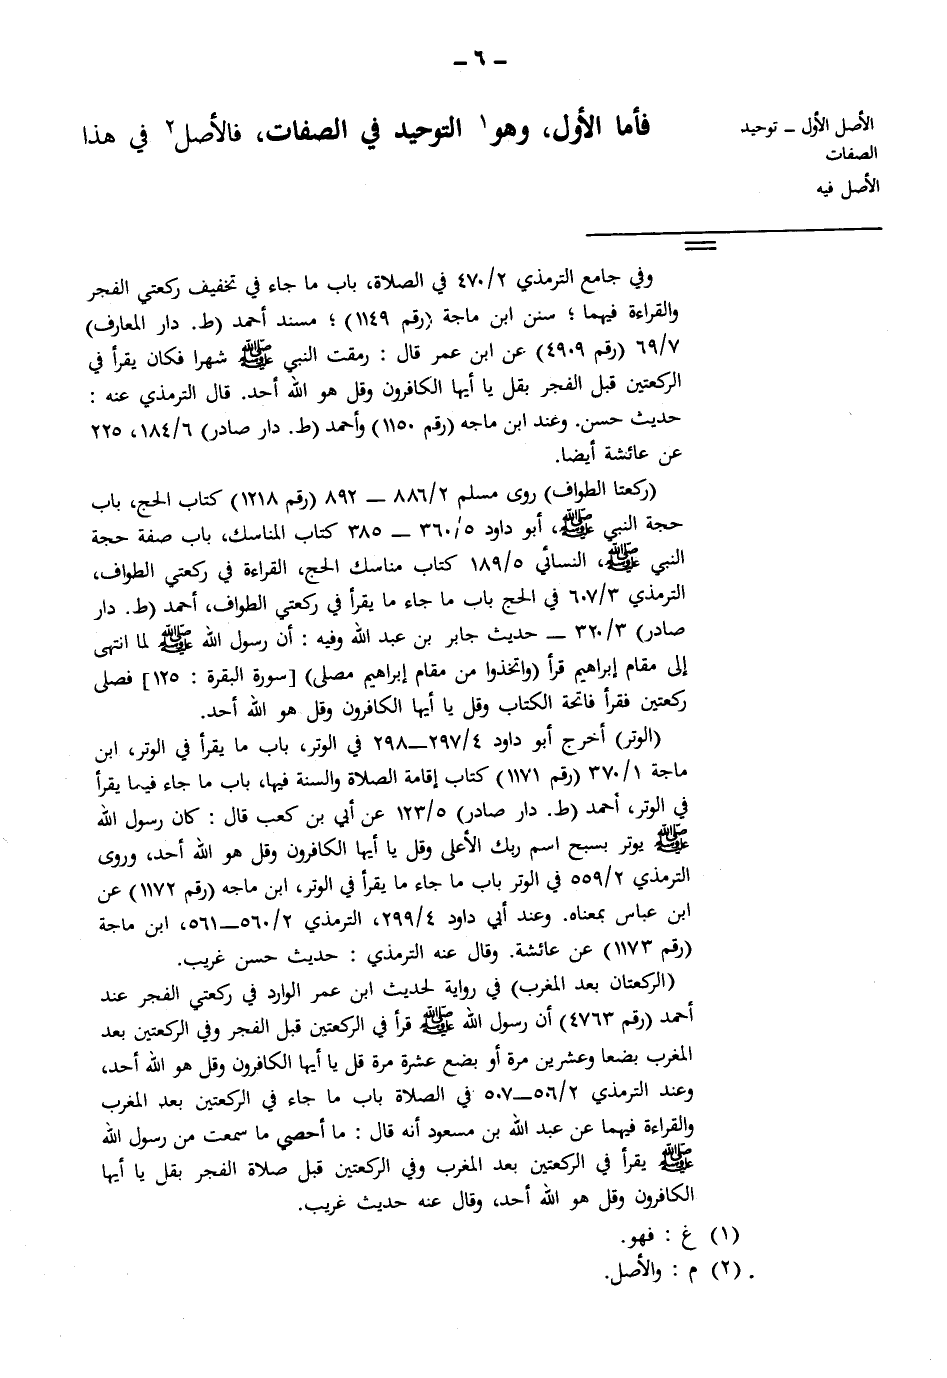 – ٦ –
فأما الأول، وهو١ التوحيد في الصفات، فالأصل٢ في هذا
الأصل الأول – توحيد
الصفات
الأصل فيه
وفي جامع الترمذي ٤٧٠/٢ في الصلاة، باب ما جاء في تخفيف ركعتي الفجر
والقراءة فيهما ؛ سنن ابن ماجة (رقم ١١٤٩) ؛ مسند أحمد (ط. دار المعارف)
٦٩/٧ (رقم ٤٩٠٩) عن ابن عمر قال : رمقت النبي ﷺ شهرا فكان يقرأ في
الركعتين قبل الفجر بقل يا أيها الكافرون وقل هو الله أحد. قال الترمذي عنه :
حديث حسن. وعند ابن ماجه (رقم ١١٥٠) وأحمد (ط. دار صادر) ١٨٤/٦، ٢٢٥
عن عائشة أيضا.
(ركعتا الطواف) روى مسلم ٨٨٦/٢ – ٨٩٢ (رقم ١٢١٨) كتاب الحج، باب
حجة النبي ﷺ، أبو داود ٣٦٠/٥ – ٣٨٥ كتاب المناسك، باب صفة حجة
النبي ﷺ، النسائي ١٨٩/٥ كتاب مناسك الحج، القراءة في ركعتي الطواف،
الترمذي ٦٠٧/٣ في الحج باب ما جاء ما يقرأ في ركعتي الطواف، أحمد (ط. دار
صادر) ٣٢٠/٣ – حديث جابر بن عبد الله وفيه : أن رسول الله ﷺ لما انتهى
إلى مقام إبراهيم قرأ (واتخذوا من مقام إبراهيم مصلى) [سورة البقرة : ١٢٥] فصلى
ركعتين فقرأ فاتحة الكتاب وقل يا أيها الكافرون وقل هو الله أحد.
(الوتر) أخرج أبو داود ٢٩٧/٤–٢٩٨ في الوتر، باب ما يقرأ في الوتر، ابن
ماجة ٣٧٠/١ (رقم ١١٧١) كتاب إقامة الصلاة والسنة فيها، باب ما جاء فيما يقرأ
في الوتر، أحمد (ط. دار صادر) ١٢٣/٥ عن أبي بن كعب قال : كان رسول الله
ﷺ يوتر بسبح اسم ربك الأعلى وقل يا أيها الكافرون وقل هو الله أحد، وروى
الترمذي ٥٥٩/٢ في الوتر باب ما جاء ما يقرأ في الوتر، ابن ماجه (رقم ١١٧٢) عن
ابن عباس بمعناه. وعند أبي داود ٢٩٩/٤، الترمذي ٥٦٠/٢–٥٦١، ابن ماجة
(رقم ١١٧٣) عن عائشة. وقال عنه الترمذي : حديث حسن غريب.
(الركعتان بعد المغرب) في رواية لحديث ابن عمر الوارد في ركعتي الفجر عند
أحمد (رقم ٤٧٦٣) أن رسول الله ﷺ قرأ في الركعتين قبل الفجر وفي الركعتين بعد
المغرب بضعا وعشرين مرة أو بضع عشرة مرة قل يا أيها الكافرون وقل هو الله أحد،
وعند الترمذي ٥٠٦/٢–٥٠٧ في الصلاة باب ما جاء في الركعتين بعد المغرب
والقراءة فيهما عن عبد الله بن مسعود أنه قال : ما أحصي ما سمعت من رسول الله
ﷺ يقرأ في الركعتين بعد المغرب وفي الركعتين قبل صلاة الفجر بقل يا أيها
الكافرون وقل هو الله أحد، وقال عنه حديث غريب.
(١) غ : فهو.
(٢) م : والأصل.